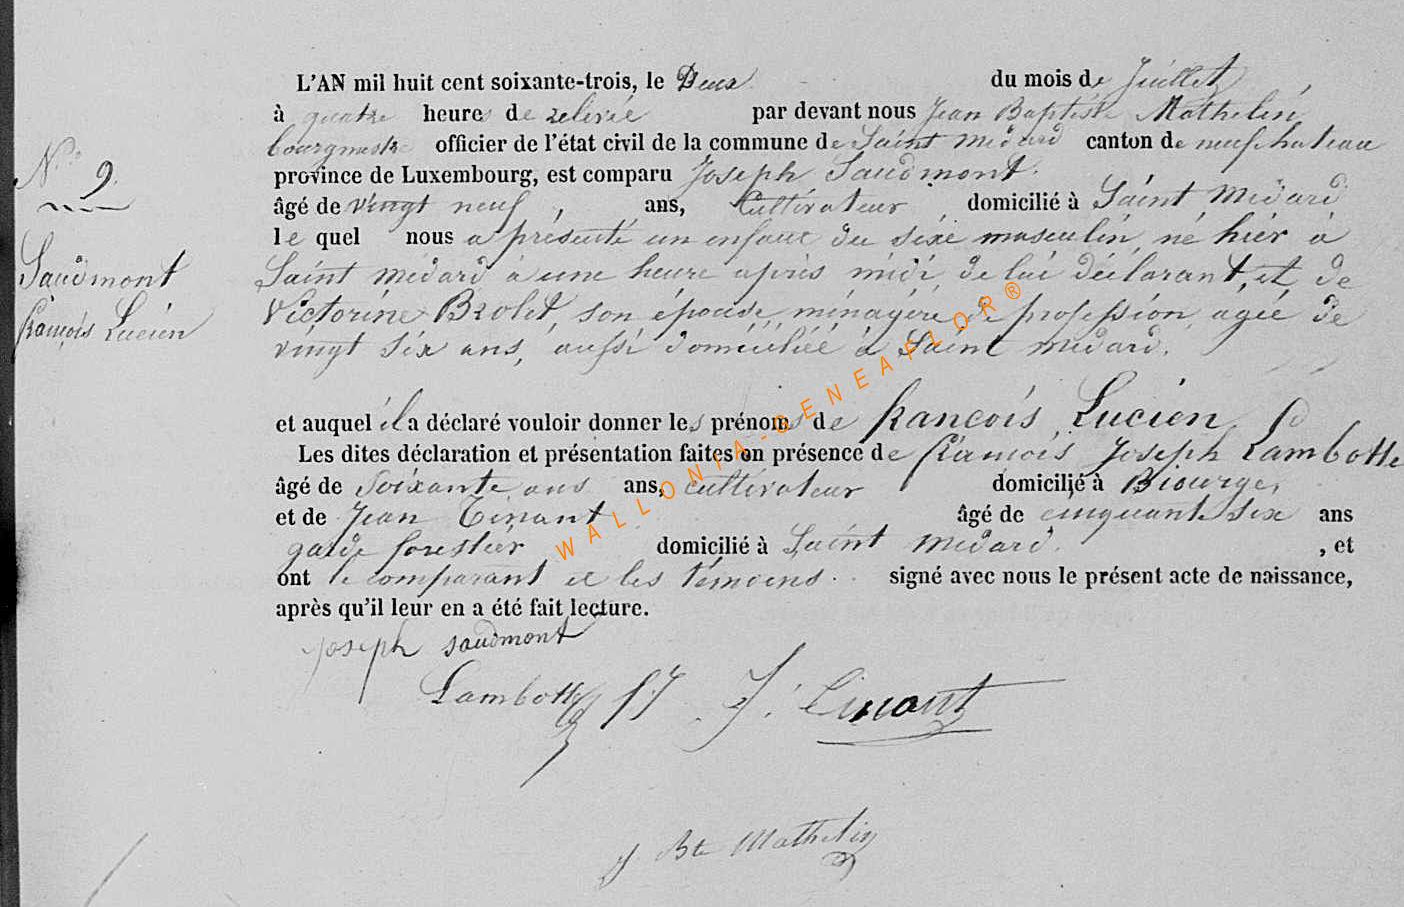 L'AN mil huit cent soixante-trois, le Deux du mois de Juillet
à quatre heures de relevée par devant nous Jean Baptiste Mathelin
bourgmestre officier de l'état civil de la commune de Saint Médard canton de neufchateau
province de Luxembourg, est comparu Joseph Saudmont
âgé de vingt neuf ans, Cultivateur domicilié à Saint Médard
le quel nous a présenté un enfant du sexe masculin, né hier à
Saint Médard à une heure après midi de lui déclarant, et de
Victorine Brolet, son épouse ménagère de profession agée de
vingt six ans, aussi domiciliée à Saint Médard.
et auquel il a déclaré vouloir donner les prénoms de françois Lucien
Les dites déclaration et présentation faites en présence de françois Joseph Lambotte
âgé de Soixante ans ans, cultivateur domicilié à Biourge,
et de Jean Tinant âgé de cinquante six ans
garde forestier domicilié à Saint Médard. , et
ont le comparant et les témoins signé avec nous le présent acte de naissance,
après qu'il leur en a été fait lecture.
N° 9.
Saudmont
françois Lucien
joseph saudmont
Lambotte f J J. Tinant
J Bte Mathelin
WALLONIA-GENEAFLOR®